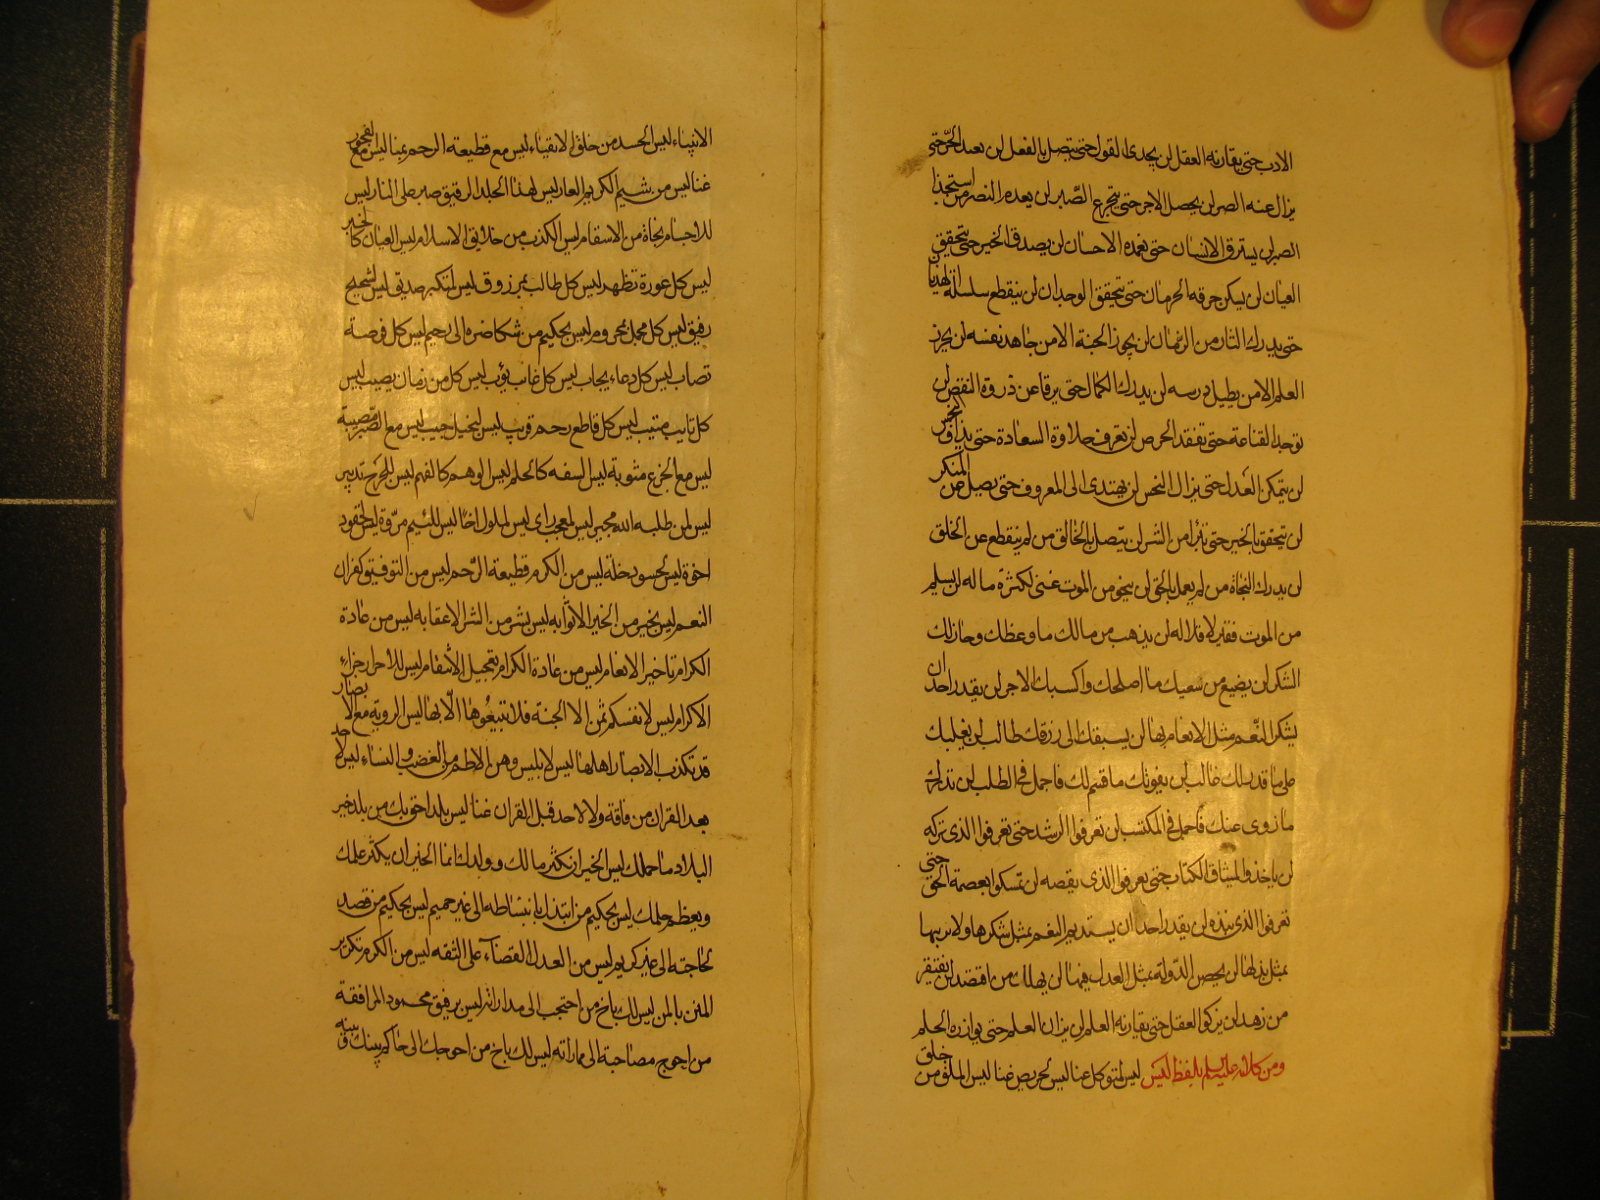 الادب حتى يقارنه العقل لن يجدى القول حتى يتصل بالفعل لن يعبد الحر حتى
يزال عنه الصر لن يحصل الاجر حتى يتجرع الصبر لن يعدم النصر من استنجد
الصبر لن يسترق الانسان حتى يغمده الاحسان لن يصدق الخبر حتى يتحقق
العيان لن يسكن حرقه الحرمان حتى يتحقق الوجدان لن ينقطع سلسلة الهذيان
حتى يدرك الثار من الزمان لن يجوز الجنة الا من جاهد نفسه لن يحرز
العلم الا من يطيل درسه لن يدرك الكمال حتى يرقا عن ذروة النقص لن
توجد القناعة حتى تفقد الحرص لن تعرف حلاوة السعادة حتى يذاق النحس
لن يتمكن العدل حتى يزال النحس لن يهتدى الى المعروف حتى يضل عن المنكر
لن يتحقق بالخير حتى يتبرا من الشر لن يتصل بالخالق من لم ينقطع عن الخلق
لن يدرك النجاة من لم يعمل بالحق لن ينجو من الموت غنى لكثرة ماله لن يسلم
من الموت فقير لاقلاله لن يذهب من مالك ما وعظك وحاز لك
الشكر لن يضيع من سعيك ما اصلحك واكسبك الاجر لن يقدر احد ان
يشكر النعم بمثل الانعام بها لن يسبقك الى رزقك طالب لن يغلبك
على ما قدر لك غالب لن يفوتك ما قسم لك فاجمل فى الطلب لن تدرك
ما زوى عنك فاجمل فى المكتسب لن تعرفوا الرشد حتى تعرفوا الذى تركه
لن ياخذوا بميثاق الكتاب حتى يعرفوا الذى نقضه لن تمسكوا بعصمة الحق حتى
تعرفوا الذى نبذه لن يقدر احد ان يستديم النعم بمثل شكرها ولا يزينها
بمثل بذلها لن يحصن الدولة بمثل العدل فيها لن يهلك من اقتصد لن يفتقر
من زهد لن يزكو العقل حتى يقارنه العلم لن يزان العلم حتى يوازره الحلم
ومن كلامه عليه السلم بلفظ ليس ليس لمتوكل عنا ليس لحريص غنا ليس الملق من خلق
الانبياء ليس الحسد من خلق الاتقياء ليس مع قطيعة الرحم نما ليس مع الفجور
غنا ليس من شيم الكريم العار ليس لهذا الجلد الرقيق صبر على النار ليس
للاجسام نجاة من الاسقام ليس الكذب من خلايق الاسلام ليس العيان كالخبر
ليس كل عورة تظهر ليس كل طالب بمرزوق ليس لمتكبر صديق ليس لشحيح
رفيق ليس كل مجمل بمحروم ليس بحكيم من شكا ضره الى رحيم ليس كل فرصة
تصاب ليس كل دعاء يجاب ليس كل غايب يؤب ليس كل من رمى ان يصيب ليس
كل تايب منيب ليس كل قاطع رحم قريب ليس لبخيل حبيب ليس مع الصبر مصيبة
ليس مع الجزع مثوبة ليس السفه كالحلم ليس الوهم كالفهم ليس للجرح تدبير
ليس لمن طلبه الله مجير ليس لمعجب راى ليس لملول اخا ليس للئيم مروة ليس لحقود
اخوة ليس لحسود خلة ليس من الكرم قطيعة الرحم ليس من التوفيق كفران
النعم ليس بخير من الخير الا ثوابه ليس بشر من الشر الا عقابه ليس من عادة
الكرام تاخير الانعام ليس من عادة الكرام تعجيل الانتقام ليس للاحرار جزاء
الا الاكرام ليس لانفسكم ثمن الا الجنة فلا تبيعوها الا بها ليس الروية مع الابصار
قد تكذب الابصار اهلها ليس لابليس وهن الاطم من الغضب والنساء ليس لاحد
بعد القران من فاقة ولا لاحد قبل القران غنا ليس بلد احق بك من بلد خير
البلاد ما حملك ليس الخير ان يكثر مالك وولدك انما الخير ان يكثر علمك
ويعظم حلمك ليس بحكيم من ابتذل بانبساطه الى غير حميم ليس بحكيم من قصد
بحاجته الى غير كريم ليس من العدل القضاء على الثقه ليس من الكرم تكدير
المنن بالمن ليس لك باخ من احتجب الى مداراته ليس برفيق محمود المرافقة
من احوج مصاحبه الى مماراته ليس لك باخ من احوجك الى حاكم بينك وبينه